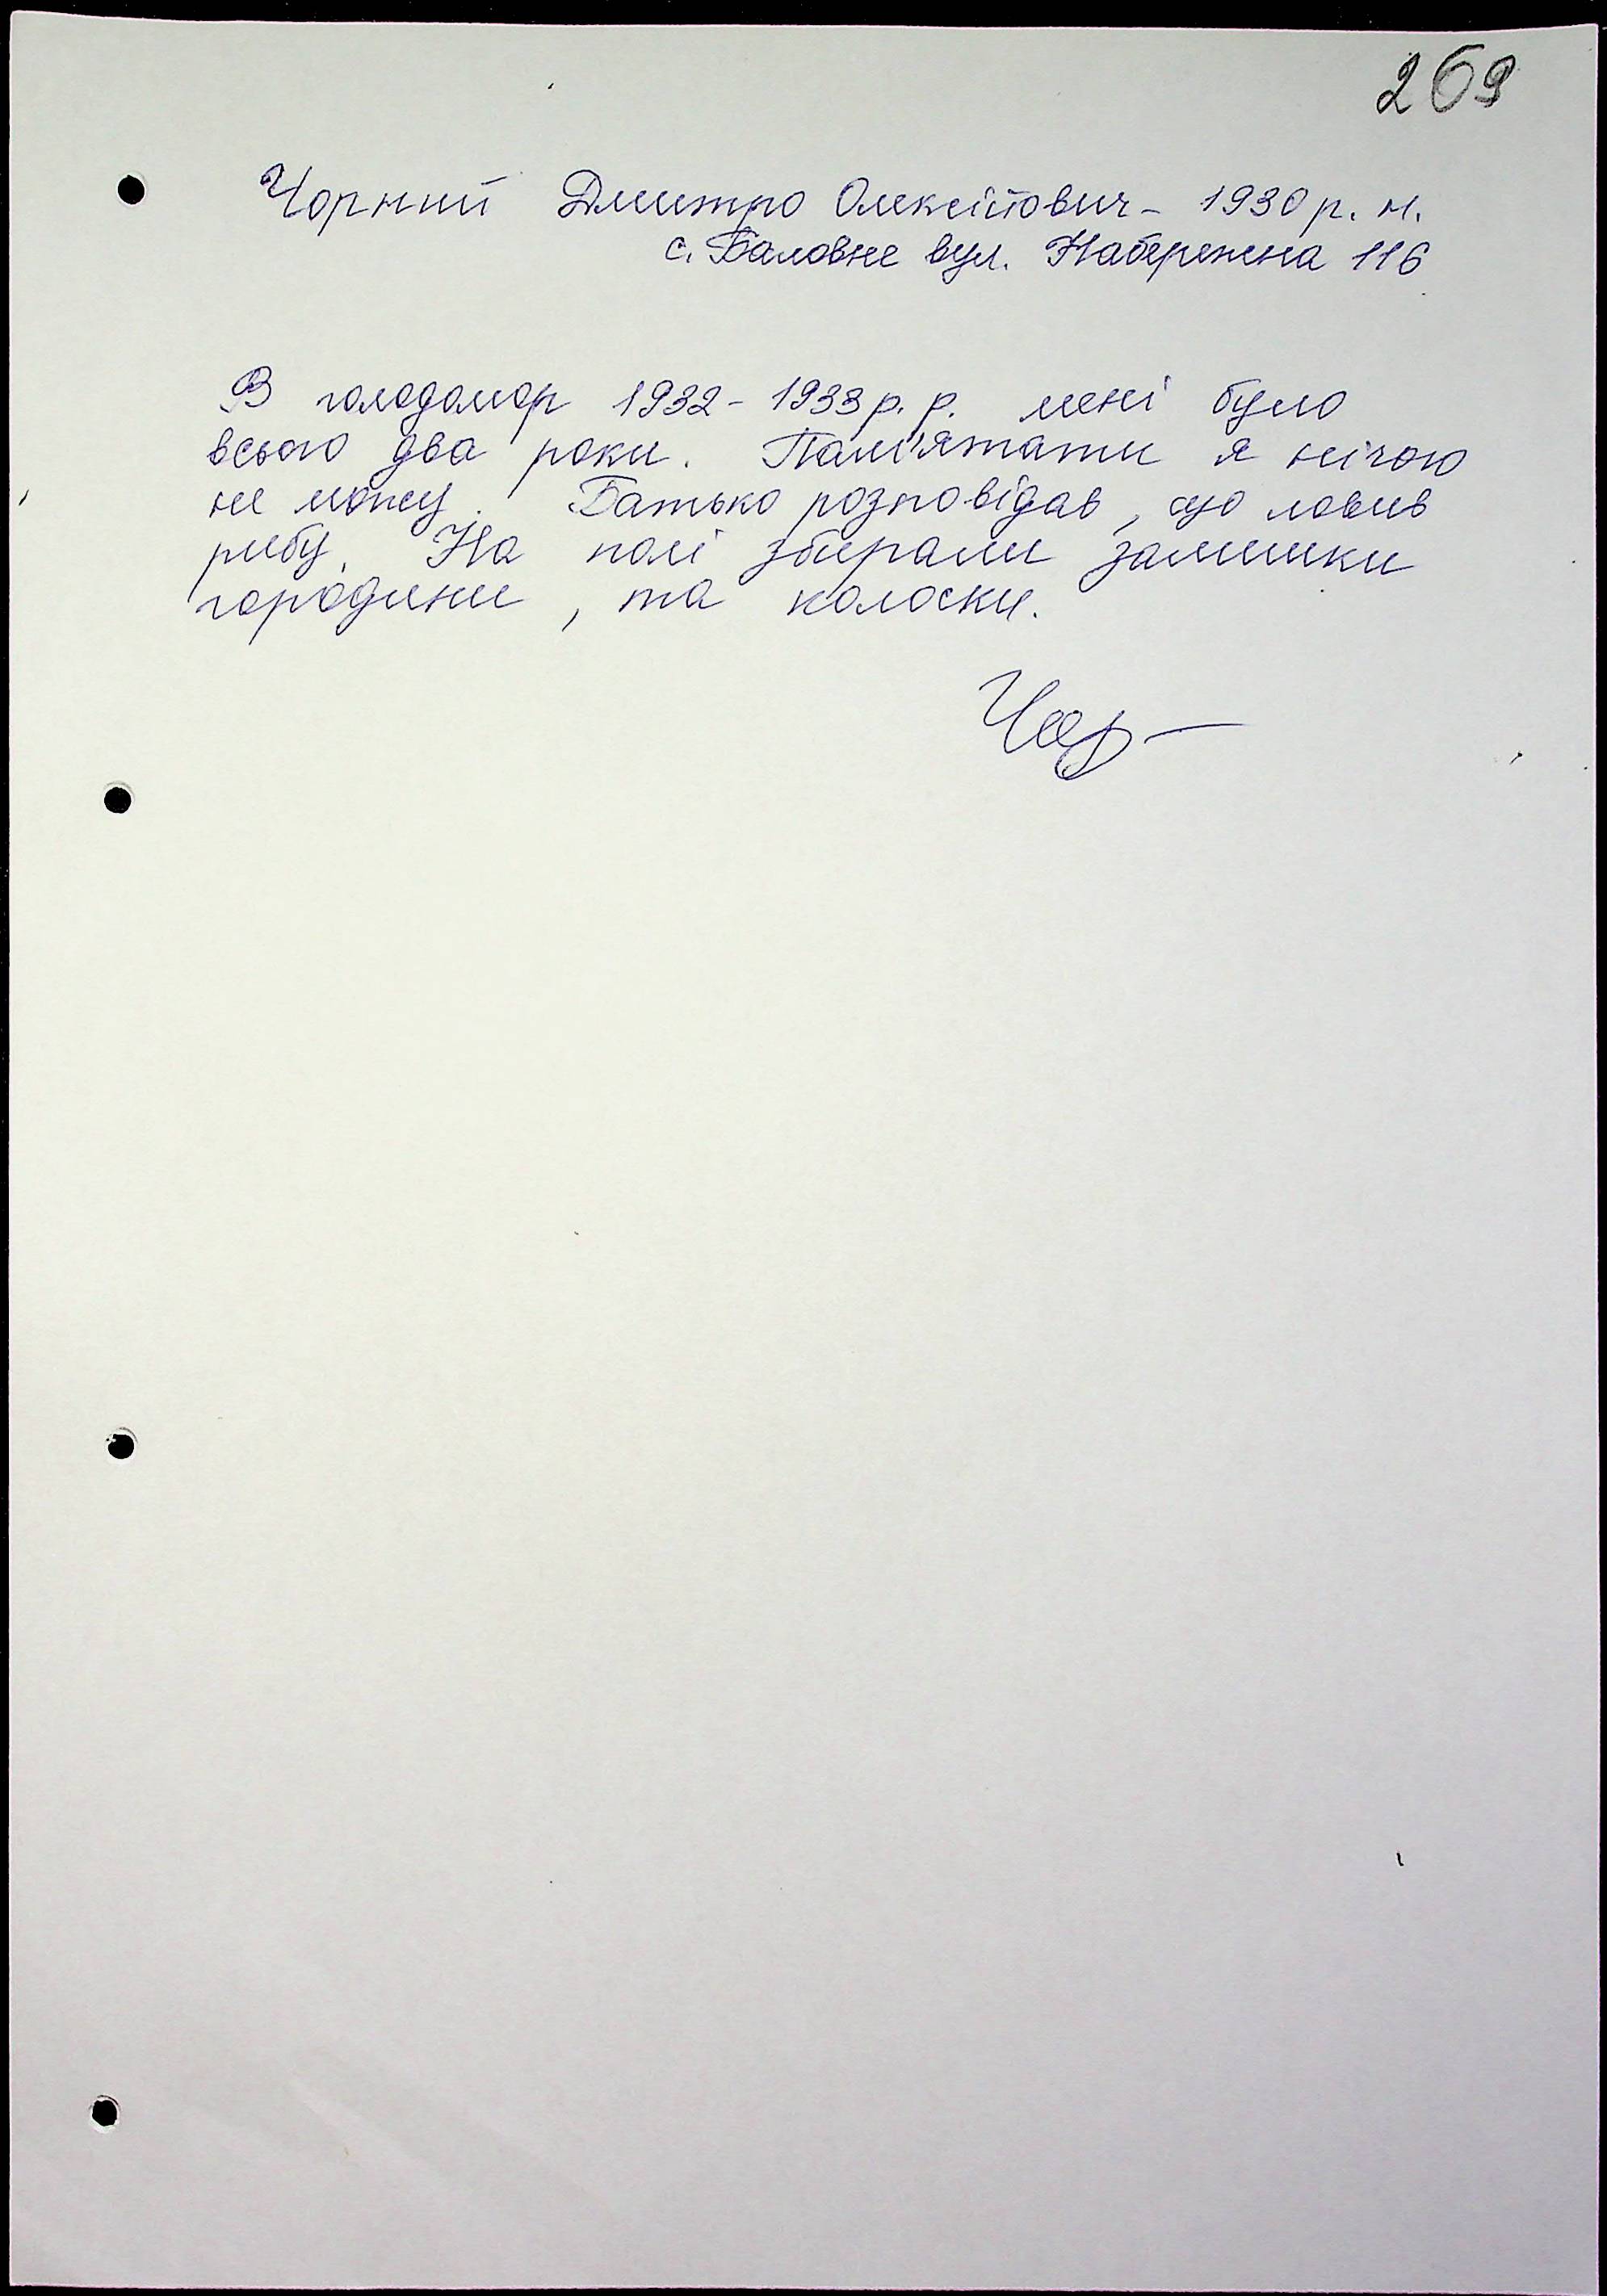 269
Чорний Дмитро Олексійович - 1930 р. н.
с. Баловне вул. Набережна 116
В голодомор 1932 - 1933 р. р. мені було
всього два роки. Пам'ятати я нічого
не можу. Батько розповідав, що ловив
рибу. На полі збирали залишки
городини, та колоски.
Чор